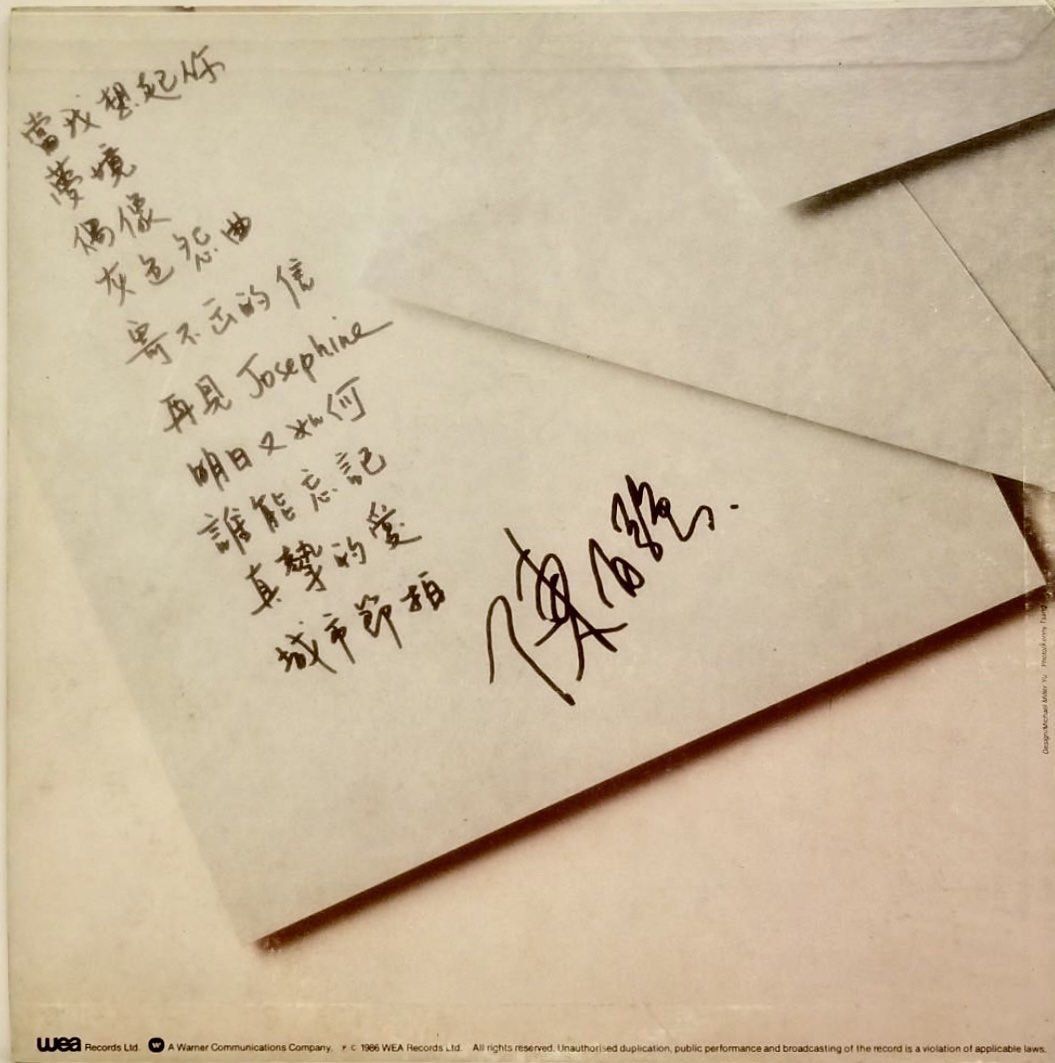 當我想起你
夢境
偶像
灰色怨曲
寄不出的信
再見 Josephine
明日又如何
誰能忘記
真摯的愛
城市節拍
陳百強
Design/Michael Miller Yu Photo/Kenny Tsang
wea Records Ltd. W A Warner Communications Company. ℗ © 1986 WEA Records Ltd. All rights reserved. Unauthorised duplication, public performance and broadcasting of the record is a violation of applicable laws.